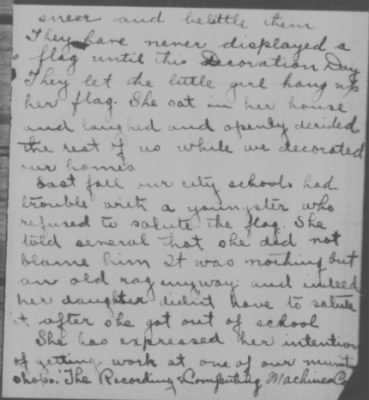 sneer and belittle them
They have never displayed a
flag until this Decoration Day
They let the little girl hang up
her flag. She sat in her house
and laughed and openly derided
the rest of us while we decorated
our homes
Last fall our city schools had
trouble with a youngster who
refused to salute the flag. She
told several that she did not
blame him It was nothing but
an old rag anyway and indeed
her daughter didn't have to salute
it after she got out of school
She has expressed her intention
of getting work at one of our
shops. The Recording & Computing Machines Co